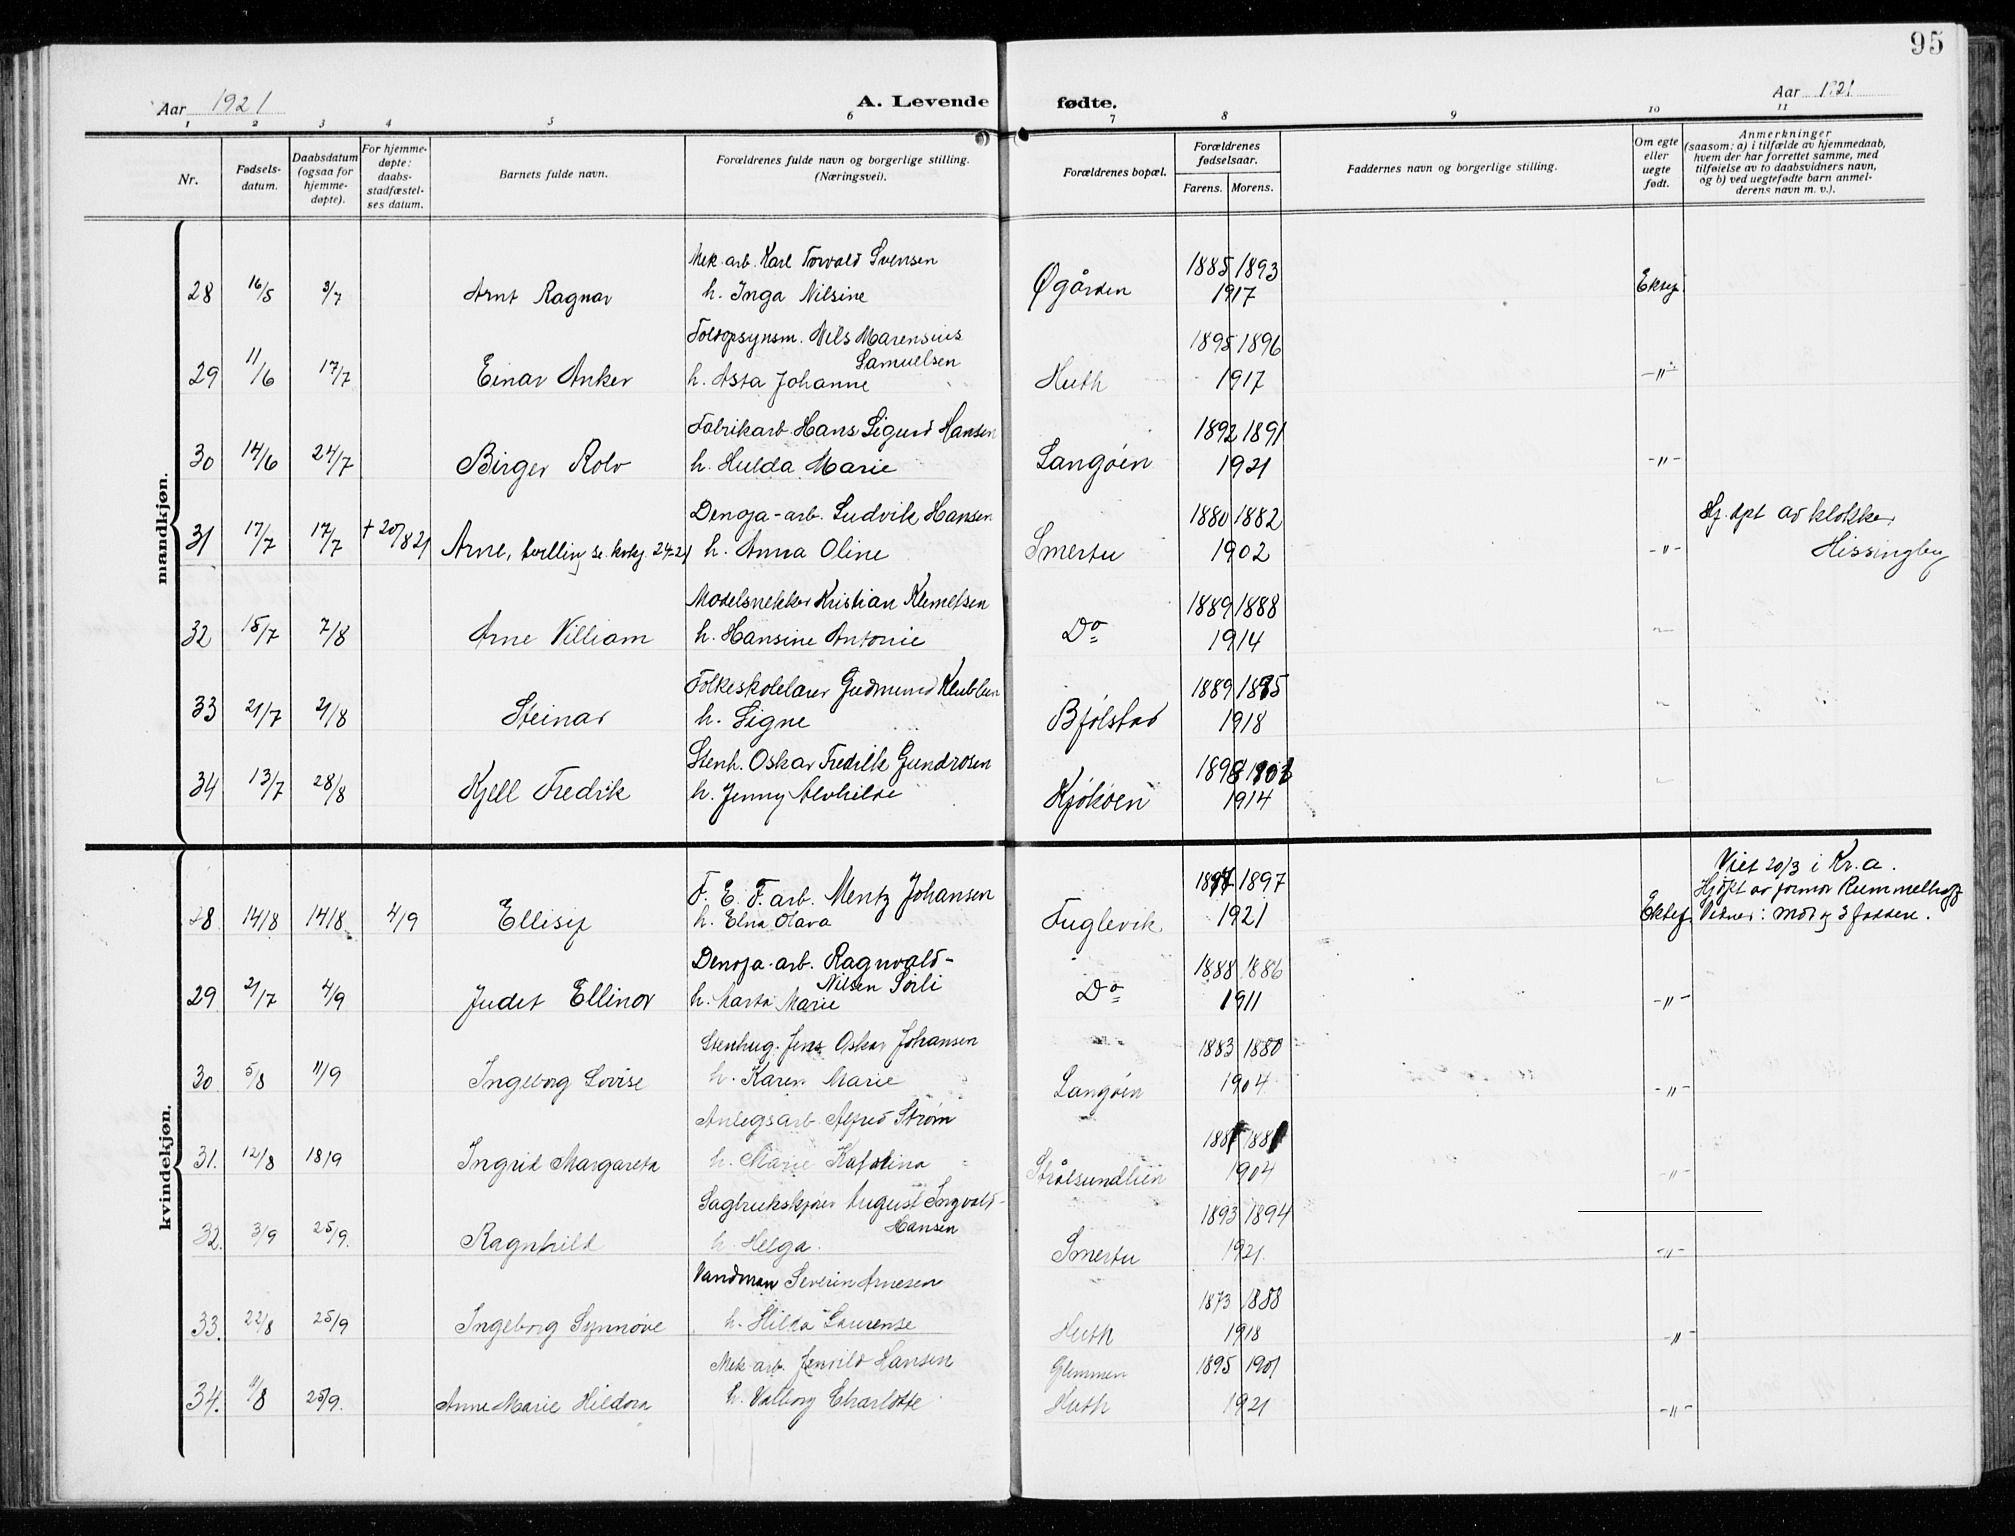 95
Aar 1921
A. Levende fødte.
Aar 1921
1 2 3 4 5 6 7 8 9 10 11
Nr.
Fødsels-
datum.
Daabsdatum
(ogsaa for
hjemme-
døpte).
For hjemme-
døpte:
daabs-
stadfæstel-
ses datum.
Barnets fulde navn.
Forældrenes fulde navn og borgerlige stilling.
(Næringsvei).
Forældrenes bopæl.
Forældrenes
fødselsaar.
Farens. Morens.
Faddernes navn og borgerlige stilling.
Om egte
eller
uegte
født.
Anmerkninger
(saasom: a) i tilfælde av hjemmedaab,
hvem der har forrettet samme, med
tilføielse av to daabsvidners navn,
og b) ved uegtefødte barn anmel-
derens navn m. v.).
mandkjøn.
Mek. arb. Karl Torvald Svensen 1885 1893
28 16/5 3/7 Arnt Ragnar h. Inga Nilsine Øgården 1917 Ektef
Toldopsynsm. Nils Marensius 1895 1896
Samuelsen
29 11/6 17/7 Einar Anker h. Asta Johanne Huth 1917 -"-
Fabrikarb. Hans Sigurd Hansen 1892 1891
30 14/6 24/7 Birger Rolv h. Hulda Marie Langøen 1921 -"-
Denoja-arb. Ludvik Hansen 1880 1882 Hj. dpt av klokker
31 17/7 17/7 + 20/8 21 Arne, tvilling se kvkj. 24-21 h. Anna Oline Smertu 1902 -"- Hissingby
Modelsnekker Kristian Klemetsen 1889 1888
32 15/7 7/8 Arne Villiam h. Hansine Antonie Do 1914 "
Folkeskolelærer Gudmund 1889
33 21/7 21/8 Steinar h. Signe Bjølstad 1918 "
Stenh. Oskar Fredrik Gundrosen
34 13/7 28/8 Kjell Fredrik h. Jenny Alvhilde Kjøkøen 1914 "
kvindekjøn.
Viet 20/3 i Kr.a.
F. E. F. arb. Mentz Johansen 1897 Hjdpt av jormor Rummelhoff
28 14/8 14/8 4/9 Ellisif h. Elna Olava Fuglevik 1921 Ektef Vidner: Mor og 3 faddere.
Denoja-arb. Ragnvald- 1888 1886
Nilsen Sørli
29 21/7 4/9 Judit Ellinor h. Marta Marie Do 1911 -"-
Stenhug. Jens Oskar Johansen 1883 1880
30 5/8 11/9 Ingeborg Lovise h. Karen Marie Langøen 1904 -"-
Anlegsarb. Alfred Strøm
31. 12/8 18/9 Ingrid Margareta h. Marie Katolina Strålsundlien 1904 -"-
Sagbrukskjører August Ingvald- 1893 1894
Hansen
32. 3/9 25/9. Ragnhild h. Helga. Smertu 1921. -"-
Vandman Severin Arnesen 1873 1888
33. 22/8 25/9 Ingeborg Synnøve h. Hilda Laurense Huth 1918 -"-
Mek arb. Jenvild Hansen Glemmen 1895 1901
34. 11/8 25/9. Anne Marie Hildora h. Valborg Charlotte Huth 1921 -"-